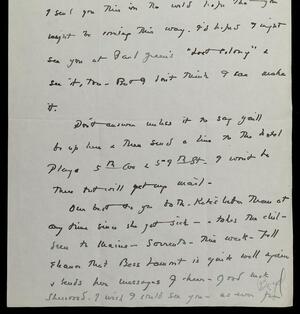 I send you this in the wild hope that you
might be coming this way. I'd hoped I might
see you at Paul Green's "Lost Colony" &
see it, too - But I don't think I can make
it.
Don't answer unless it to say you'll
be up here & then send a line to the Hotel
Plaza 5th Ave & 59th St. I won't be
there but will get my mail -
Our best to you both. Kate's better than at
any time since she got sick - & takes the chil-
dren to Maine - Sorrento - this week - Tell
Eleanor that Bess is quite well again
& sends her messages of cheer - Good luck
Sherwood. I wish I could see you - as ever